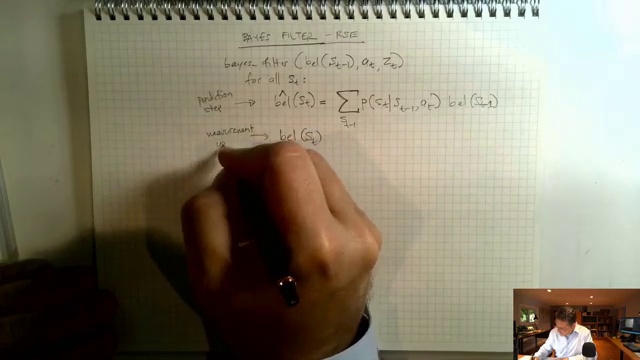 BAYES FILTER - RSE
bayes_filter (bel(s_{t-1}), a_t, z_t)
for all s_t:
prediction step → b̂el(s_t) = ∑_{s_{t-1}} p(s_t | s_{t-1}, a_t) bel(s_{t-1})
measurement → bel(s_t)